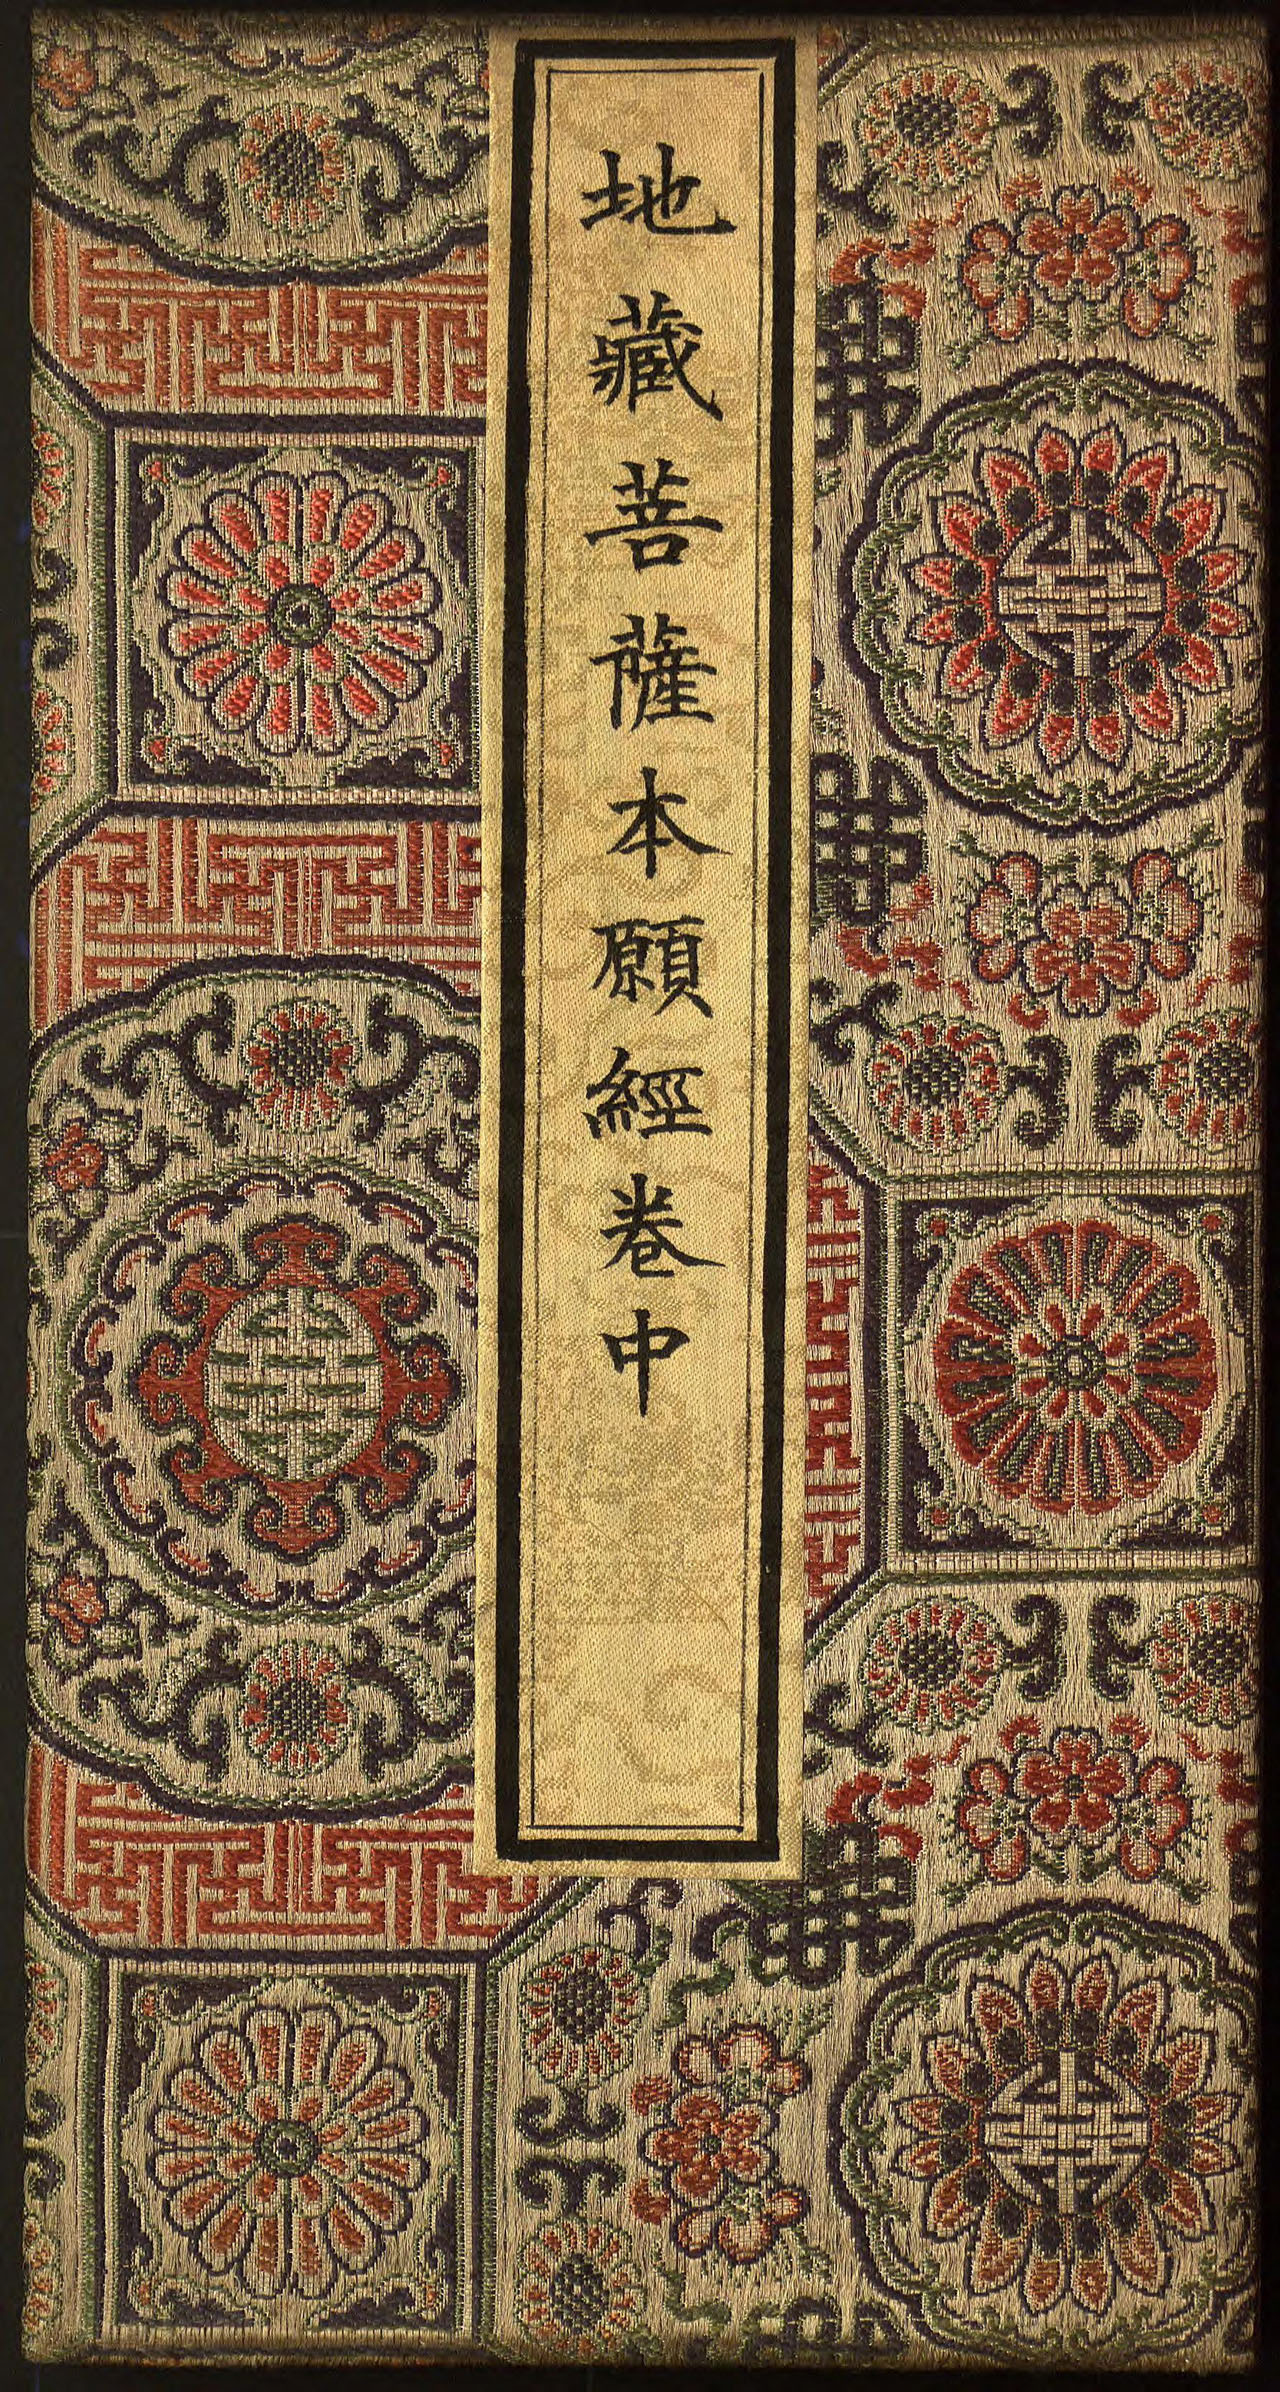 地藏菩薩本願經卷中